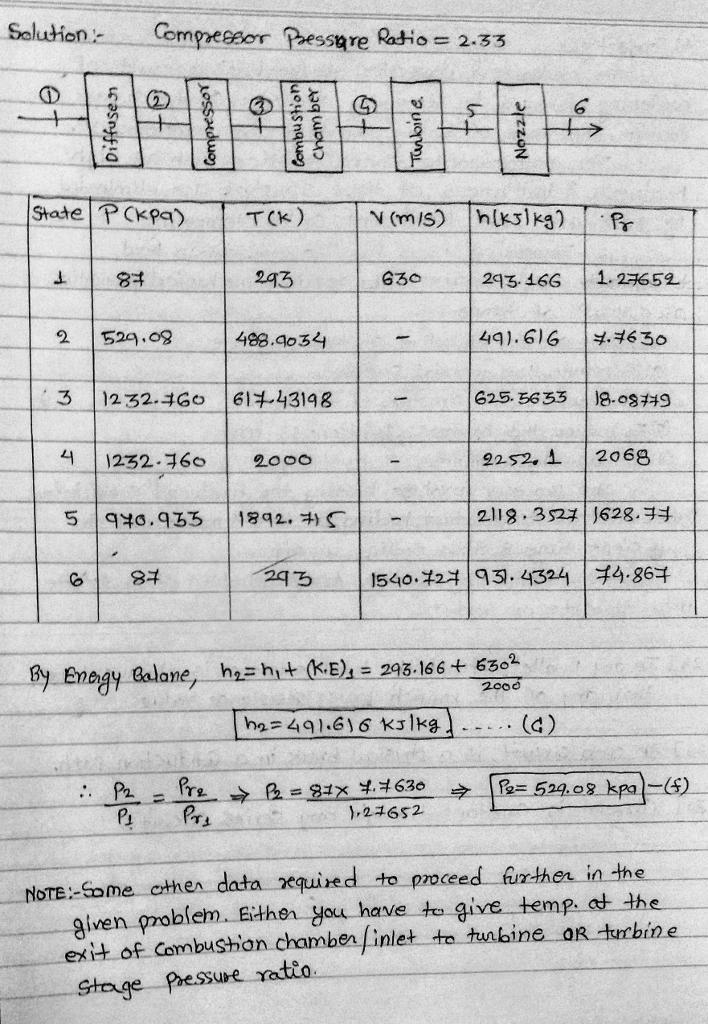 Solution:- Compressor Pressure Ratio = 2.33
① ② ③ ④ 5 6
Diffuser Compressor Combustion chamber Turbine Nozzle
State P(KPa) T(K) V(m/s) h(KJ/kg) Pr
1 87 293 630 293.166 1.27652
2 529.08 488.9034 - 491.616 7.7630
3 1232.760 617.43198 - 625.5633 18.08779
4 1232.760 2000 - 2252.1 2068
5 970.933 1892.715 - 2118.3527 1628.77
6 87 293 1540.727 931.4324 74.867
By Energy Balane, h₂=h₁+(K.E)₁ = 293.166 + 630²/2000
h₂=491.616 KJ/kg ..... (G)
∴ P₂/P₁ = Pr₂/Pr₁ ⇒ P₂ = 87×7.7630/1.27652 ⇒ P₂= 529.08 kpa -(f)
NOTE:-Some other data required to proceed further in the
given problem. Either you have to give temp. at the
exit of combustion chamber/inlet to turbine OR turbine
stage pressure ratio.